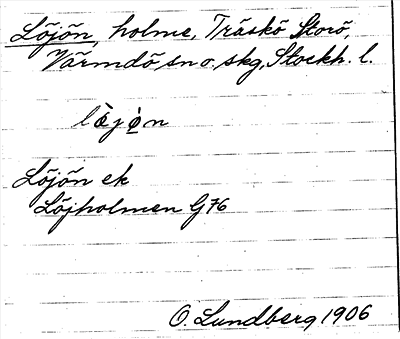 Löjön, holme, Träskö Storö,
Värmdö sn o. skg, Stockh. l.
Löjön ek
Löjholmen G76
O. Lundberg 1906